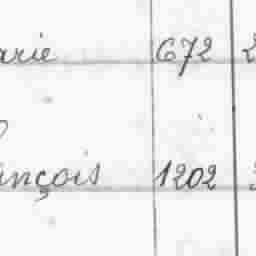 arie 672 2
ançois 1202